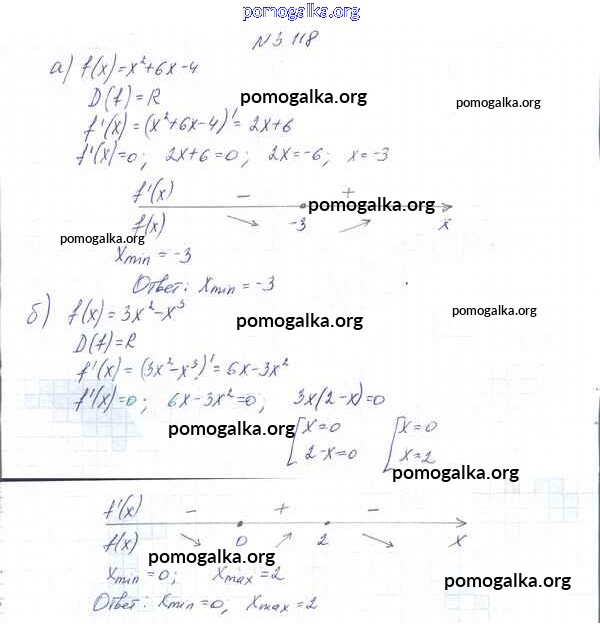 pomogalka.org
№3 118
а) f(x)=x²+6x-4
D(f)=R
pomogalka.org
pomogalka.org
f'(x)=(x²+6x-4)'=2x+6
f'(x)=0; 2x+6=0; 2x=-6; x=-3
f'(x) - +
pomogalka.org
f(x) ↘ -3 ↗ x
pomogalka.org
xmin = -3
Ответ: xmin = -3
б) f(x)=3x²-x³
pomogalka.org
pomogalka.org
D(f)=R
f'(x)=(3x²-x³)'=6x-3x²
f'(x)=0; 6x-3x²=0; 3x(2-x)=0
pomogalka.org
[x=0 [x=0
2-x=0 x=2
pomogalka.org
f'(x) - + -
f(x) ↘ 0 ↗ 2 ↘ x
pomogalka.org
xmin=0; xmax=2
pomogalka.org
Ответ: xmin=0, xmax=2